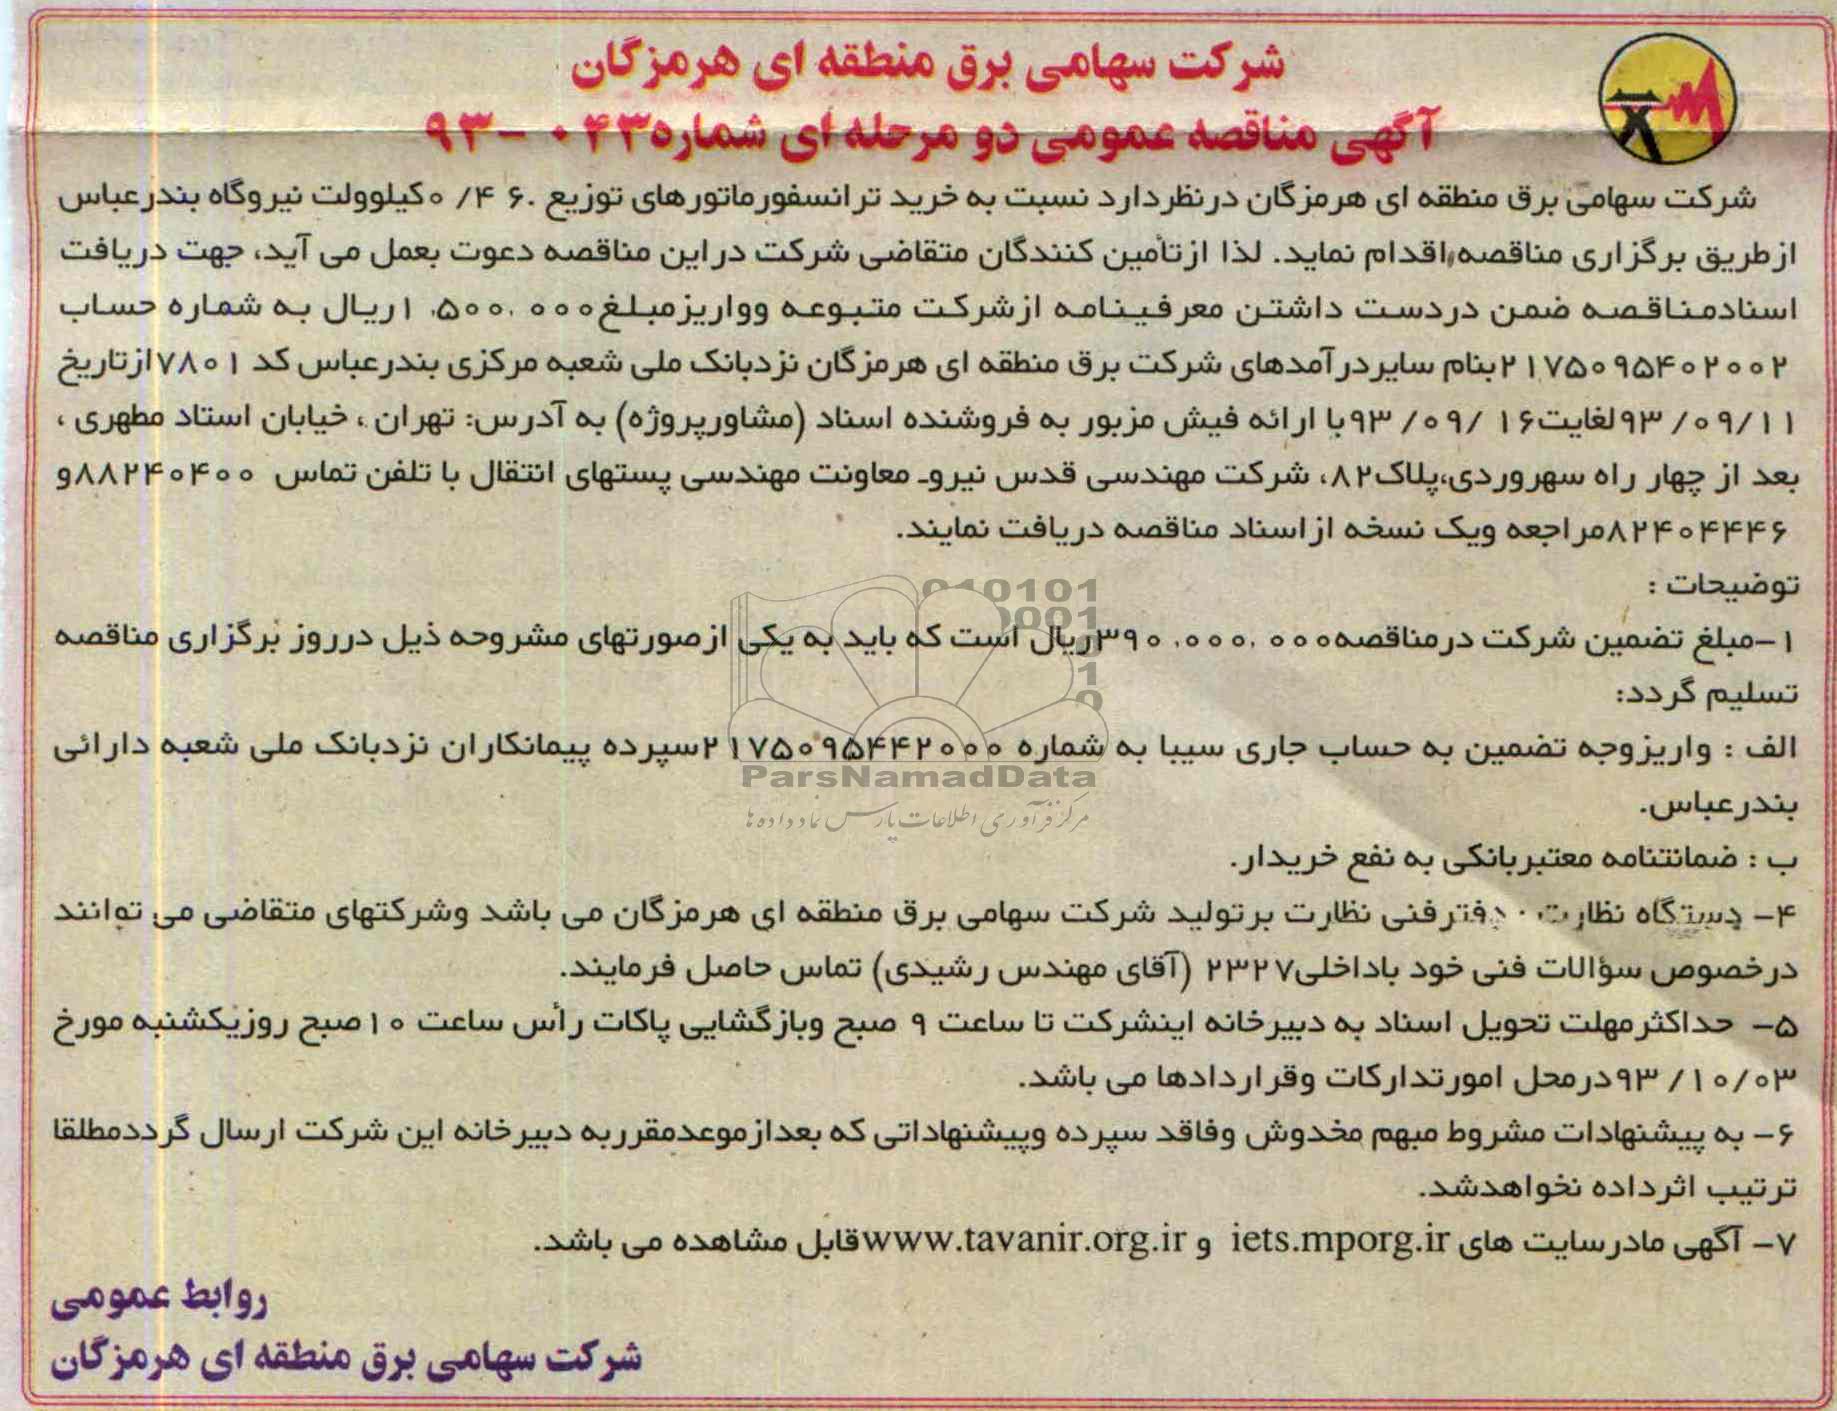 شرکت سهامی برق منطقه ای هرمزگان
آگهی مناقصه عمومی دو مرحله ای شماره ۰۴۳ -۹۳
شرکت سهامی برق منطقه ای هرمزگان درنظردارد نسبت به خرید ترانسفورماتورهای توزیع ۶.۰ /۰۴ کیلوولت نیروگاه بندرعباس
ازطریق برگزاری مناقصه اقدام نماید. لذا ازتأمین کنندگان متقاضی شرکت دراین مناقصه دعوت بعمل می آید، جهت دریافت
اسنادمناقصه ضمن دردست داشتن معرفینامه ازشرکت متبوعه وواریزمبلغ ۱،۵۰۰،۰۰۰ ریال به شماره حساب
۲۱۷۵۰۹۵۴۰۲۰۰۲ بنام سایردرآمدهای شرکت برق منطقه ای هرمزگان نزدبانک ملی شعبه مرکزی بندرعباس کد ۷۸۰۱ ازتاریخ
۹۳/۰۹/۱۱ لغایت ۹۳/۰۹/۱۶ با ارائه فیش مزبور به فروشنده اسناد (مشاورپروژه) به آدرس: تهران ، خیابان استاد مطهری ،
بعد از چهار راه سهروردی،پلاک ۸۲، شرکت مهندسی قدس نیروـ معاونت مهندسی پستهای انتقال با تلفن تماس ۸۸۲۴۰۴۰۰ و
۸۲۴۰۴۴۴۶ مراجعه ویک نسخه ازاسناد مناقصه دریافت نمایند.
توضیحات :
۱-مبلغ تضمین شرکت درمناقصه ۳۹۰،۰۰۰،۰۰۰ ریال است که باید به یکی ازصورتهای مشروحه ذیل درروز برگزاری مناقصه
تسلیم گردد:
الف : واریزوجه تضمین به حساب جاری سیبا به شماره ۲۱۷۵۰۹۵۴۴۲۰۰۰ سپرده پیمانکاران نزدبانک ملی شعبه دارائی
بندرعباس.
ب : ضمانتنامه معتبربانکی به نفع خریدار.
۴- دستگاه نظارت دفترفنی نظارت برتولید شرکت سهامی برق منطقه ای هرمزگان می باشد وشرکتهای متقاضی می توانند
درخصوص سؤالات فنی خود باداخلی ۲۳۲۷ (آقای مهندس رشیدی) تماس حاصل فرمایند.
۵- حداکثرمهلت تحویل اسناد به دبیرخانه اینشرکت تا ساعت ۹ صبح وبازگشایی پاکات رأس ساعت ۱۰ صبح روزیکشنبه مورخ
۹۳/۱۰/۰۳ درمحل امورتدارکات وقراردادها می باشد.
۶- به پیشنهادات مشروط مبهم مخدوش وفاقد سپرده وپیشنهاداتی که بعدازموعدمقرربه دبیرخانه این شرکت ارسال گرددمطلقا
ترتیب اثرداده نخواهدشد.
۷- آگهی مادرسایت های iets.mporg.ir و www.tavanir.org.ir قابل مشاهده می باشد.
روابط عمومی
شرکت سهامی برق منطقه ای هرمزگان
ParsNamadData
مرکز فرآوری اطلاعات پارس نماد داده ها